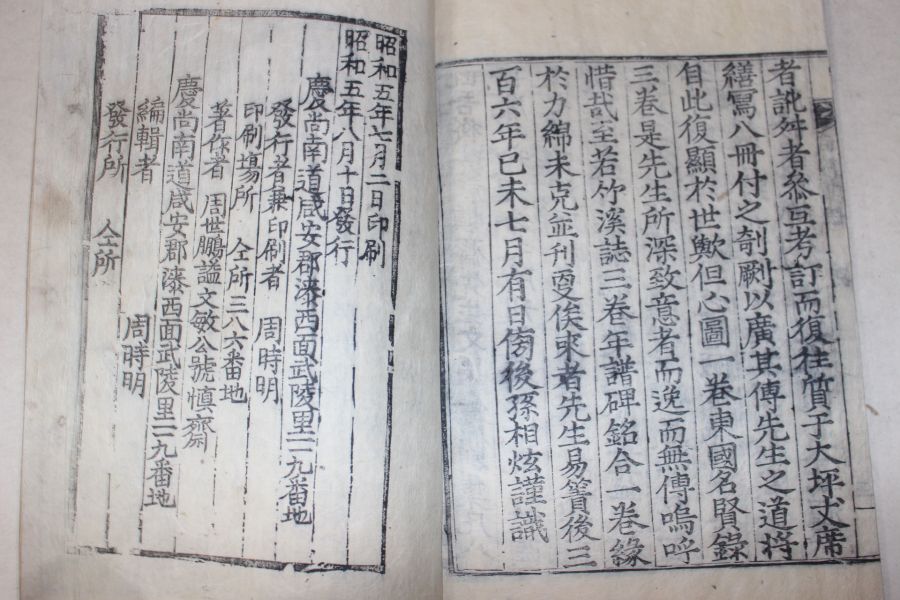 者訛舛者叅互考訂而復往質于大坪丈席
繕寫八冊付之剞劂以廣其傳先生之道將
自此復顯於世歟但心圖一卷東國名賢錄
三卷是先生所深致意者而逸而無傳嗚呼
惜哉至若竹溪誌三卷年譜碑銘合一卷緣
於力綿未克並刊更俟來者先生易簀後三
百六年己未七月有日傍後孫相炫謹識
昭和五年七月二日印刷
昭和五年八月十日發行
慶尚南道咸安郡漆西面武陵里二一九番地
發行者兼印刷者 周時明
印刷場所 仝所三八六番地
著作者 周世鵬謚文敏公號愼齋
慶尚南道咸安郡漆西面武陵里二一九番地
編輯者 周時明
發行所 仝所